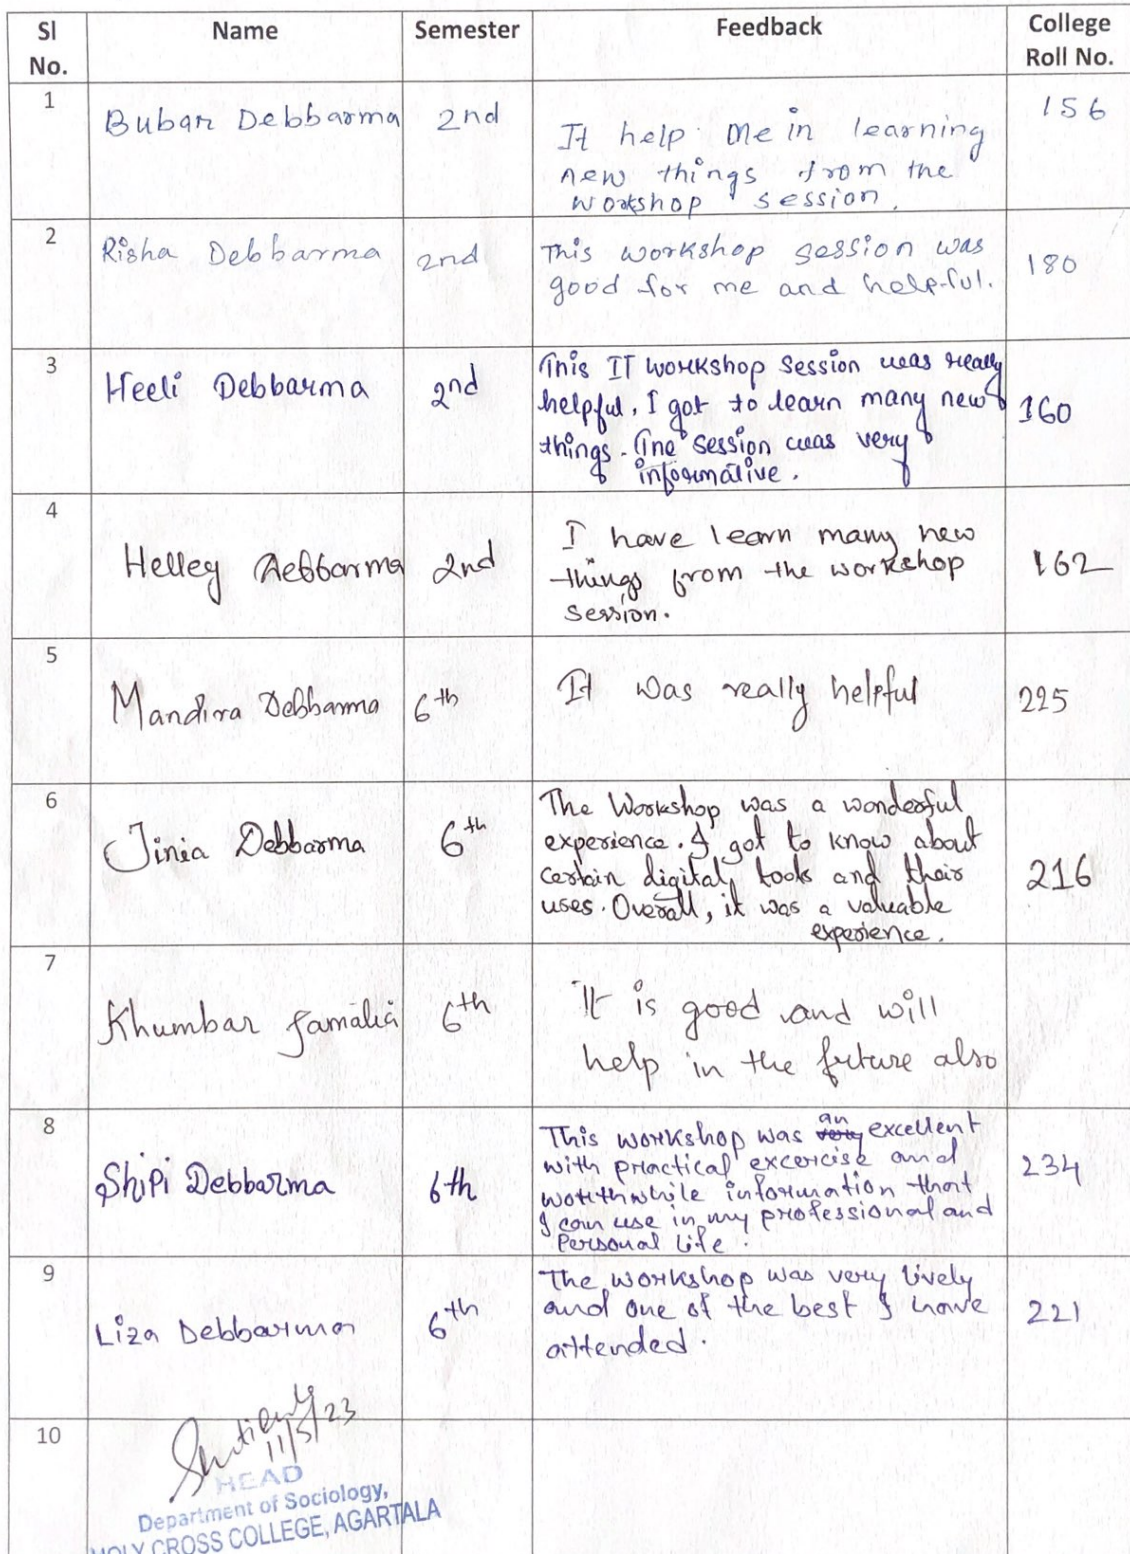 Sl No. Name Semester Feedback College Roll No.
1 Bubar Debbarma 2nd It help me in learning 156
new things from the
workshop session.
2 Risha Debbarma 2nd This workshop session was 180
good for me and helpful.
3 Heeli Debbarma 2nd This IT workshop session was really 160
helpful. I got to learn many new
things. The session was very
informative.
4 Helley Debbarma 2nd I have learn many new 162
things from the workshop
session.
5 Mandira Debbarma 6th It was really helpful 225
6 Jinia Debbarma 6th The Workshop was a wonderful 216
experience. I got to know about
certain digital tools and their
uses. Overall, it was a valuable
experience.
7 Khumbar Jamatia 6th It is good and will
help in the future also
8 Shipi Debbarma 6th This workshop was an excellent 234
with practical excercise and
worthwhile information that
I can use in my professional and
Personal life.
9 Liza Debbarma 6th The workshop was very lively 221
and one of the best I have
attended.
10
11/5/23
HEAD
Department of Sociology,
HOLY CROSS COLLEGE, AGARTALA